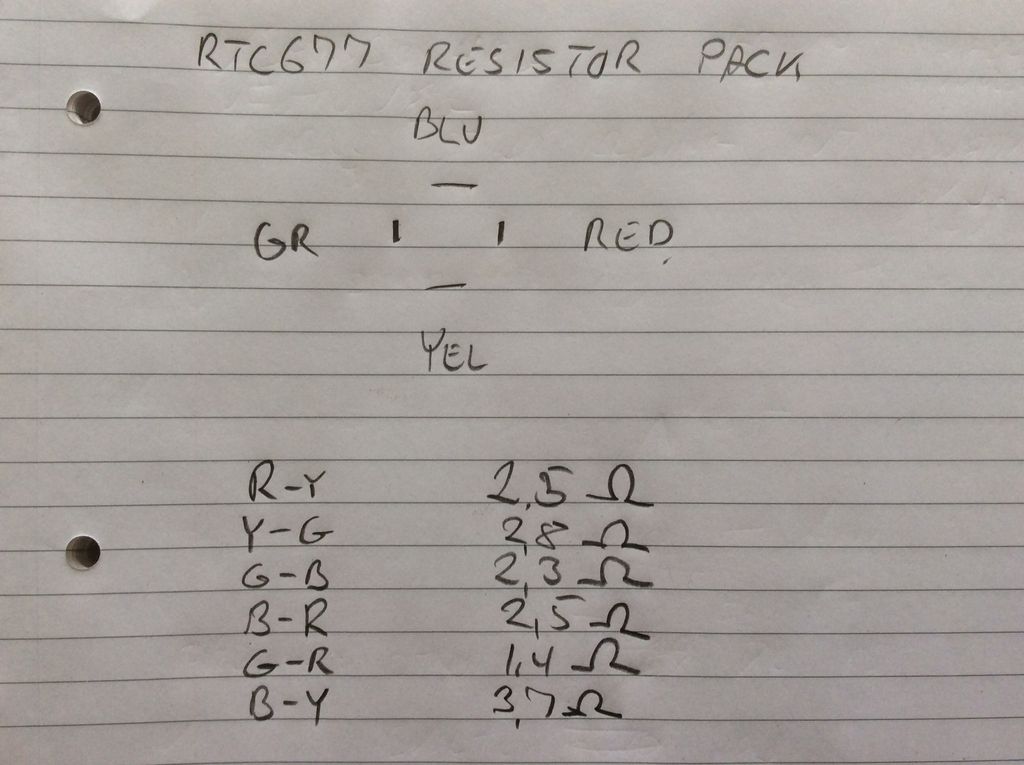 RTC677 RESISTOR PACK
BLU
GR RED
YEL
R-Y 2,5 Ω
Y-G 2,8 Ω
G-B 2,3 Ω
B-R 2,5 Ω
G-R 1,4 Ω
B-Y 3,7 Ω